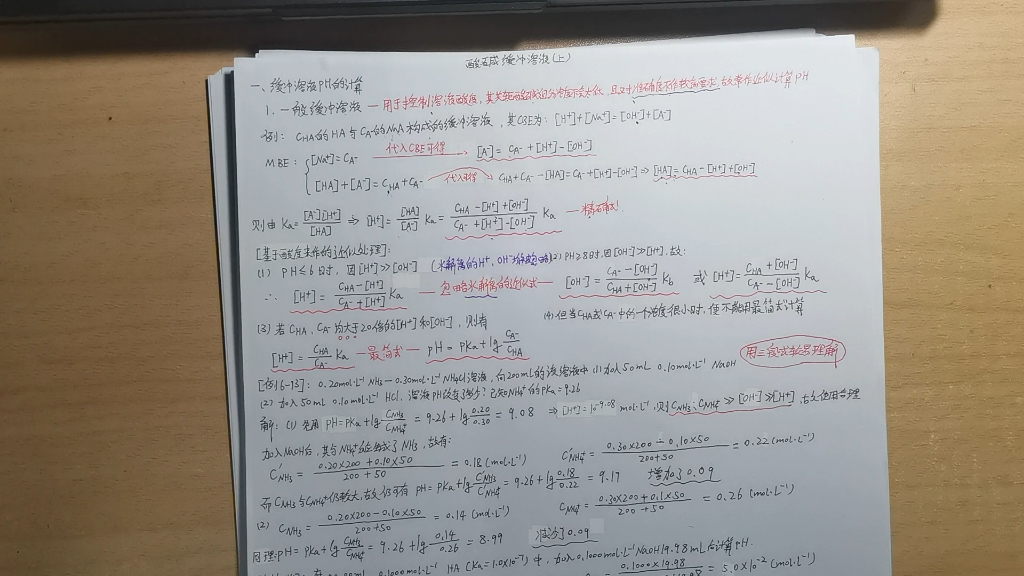 酸碱缓冲溶液(上)
一、缓冲溶液pH的计算
1. 一般缓冲溶液 — 用于控制溶液酸度，其共轭酸碱组分浓度不会太低，且对准确度不作较高要求，故常作近似计算pH
例：CHA的HA与CA⁻的NaA构成的缓冲溶液，其CBE为：[H⁺]+[Na⁺]=[OH⁻]+[A⁻]
MBE：{[Na⁺]=CA⁻ 代入CBE可得 [A⁻]=CA⁻+[H⁺]-[OH⁻]
[HA]+[A⁻]=CHA+CA⁻ 代入可得 CHA+CA⁻-[HA]=CA⁻+[H⁺]-[OH⁻] ⇒ [HA]=CHA-[H⁺]+[OH⁻]
则由 Ka=[A⁻][H⁺]/[HA] ⇒ [H⁺]=[HA]/[A⁻] Ka = (CHA-[H⁺]+[OH⁻])/(CA⁻+[H⁺]-[OH⁻]) Ka — 精确式!
[基于酸度来作的近似处理]：
(1) pH≤6时，因[H⁺]≫[OH⁻] (水解离的H⁺、OH⁻均 (2) pH≥8时，因[OH⁻]≫[H⁺]，故：
∴ [H⁺]=(CHA-[H⁺])/(CA⁻+[H⁺]) Ka — 忽略水解离的近似式 — [OH⁻]=(CA⁻-[OH⁻])/(CHA+[OH⁻]) Kb 或 [H⁺]=(CHA+[OH⁻])/(CA⁻-[OH⁻]) Ka
(3) 若CHA、CA⁻均大于20倍的[H⁺]和[OH⁻]，则有 (4) 但当CHA或CA⁻中的一个浓度很小时，便不能用最简式计算
[H⁺]=CHA/CA⁻ Ka — 最简式 — pH=pKa+lg CA⁻/CHA 用三套试卷号理解
[例6-13]：0.20mol·L⁻¹ NH₃-0.30mol·L⁻¹ NH₄Cl溶液，向200mL的该溶液中 (1) 加入50mL 0.10mol·L⁻¹ NaOH
(2) 加入50mL 0.10mol·L⁻¹ HCl，溶液pH改变了多少？已知NH₄⁺的pKa=9.26
解：(1) 先用 pH=pKa+lg CNH₃/CNH₄⁺ = 9.26+lg 0.20/0.30 = 9.08 ⇒ [H⁺]=10⁻⁹·⁰⁸ mol·L⁻¹，则CNH₃、CNH₄⁺≫[OH⁻]≫[H⁺]，故使用合理
加入NaOH后，其与NH₄⁺反应生成了NH₃，故有：
C'NH₃=(0.20×200+0.10×50)/(200+50)=0.18(mol·L⁻¹) C'NH₄⁺=(0.30×200-0.10×50)/(200+50)=0.22(mol·L⁻¹)
而CNH₃与CNH₄⁺仍较大，故仍可有 pH=pKa+lg C'NH₃/C'NH₄⁺=9.26+lg 0.18/0.22=9.17 增加了0.09
(2) CNH₃=(0.20×200-0.10×50)/(200+50)=0.14(mol·L⁻¹) CNH₄⁺=(0.30×200+0.1×50)/(200+50)=0.26(mol·L⁻¹)
同理：pH=pKa+lg CNH₃/CNH₄⁺=9.26+lg 0.14/0.26=8.99 减少了0.09
0.1000mol·L⁻¹ HA (Ka=1.0×10⁻⁷) 中，加入0.1000mol·L⁻¹ NaOH 19.98mL后计算pH.
0.1000×19.98 =5.0×10⁻²(mol·L⁻¹)